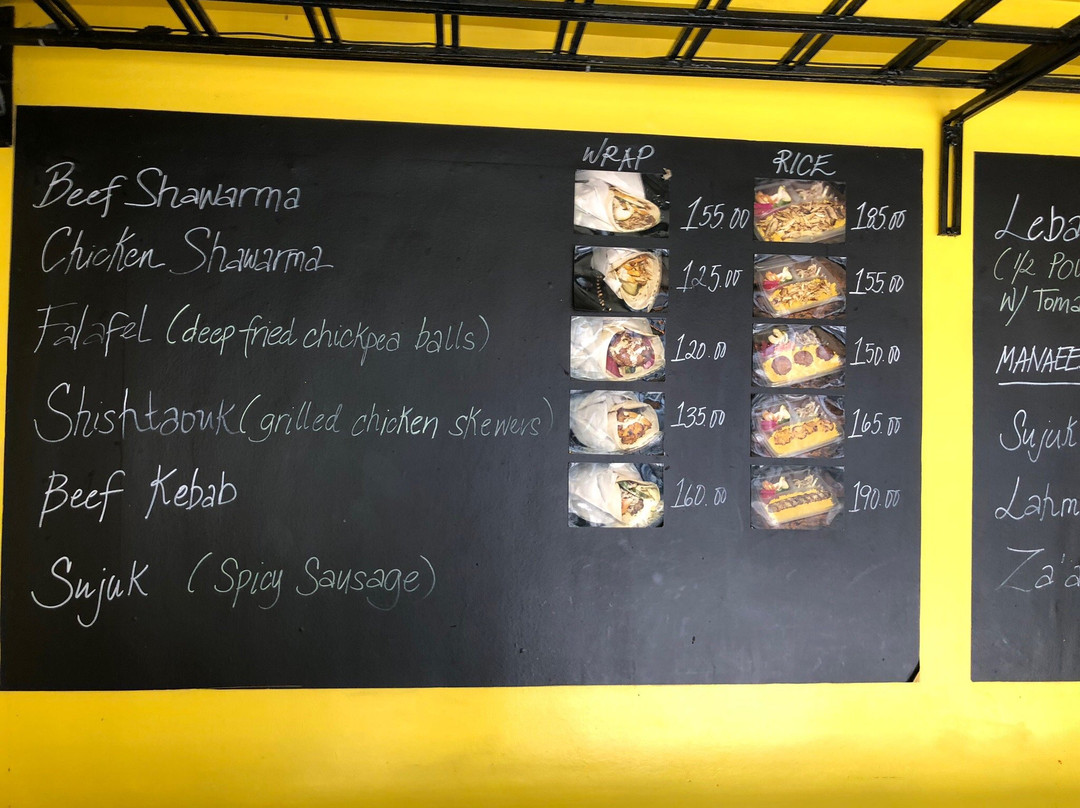 WRAP RICE
Beef Shawarma 155.00 185.00
Chicken Shawarma 125.00 155.00
Falafel (deep fried chickpea balls) 120.00 150.00
Shishtaouk (grilled chicken skewers) 135.00 165.00
Beef Kebab 160.00 190.00
Sujuk (Spicy Sausage)
Leba
(1/2 Pou
W/ Toma
MANAEE
Sujuk
Lahm
Za'a